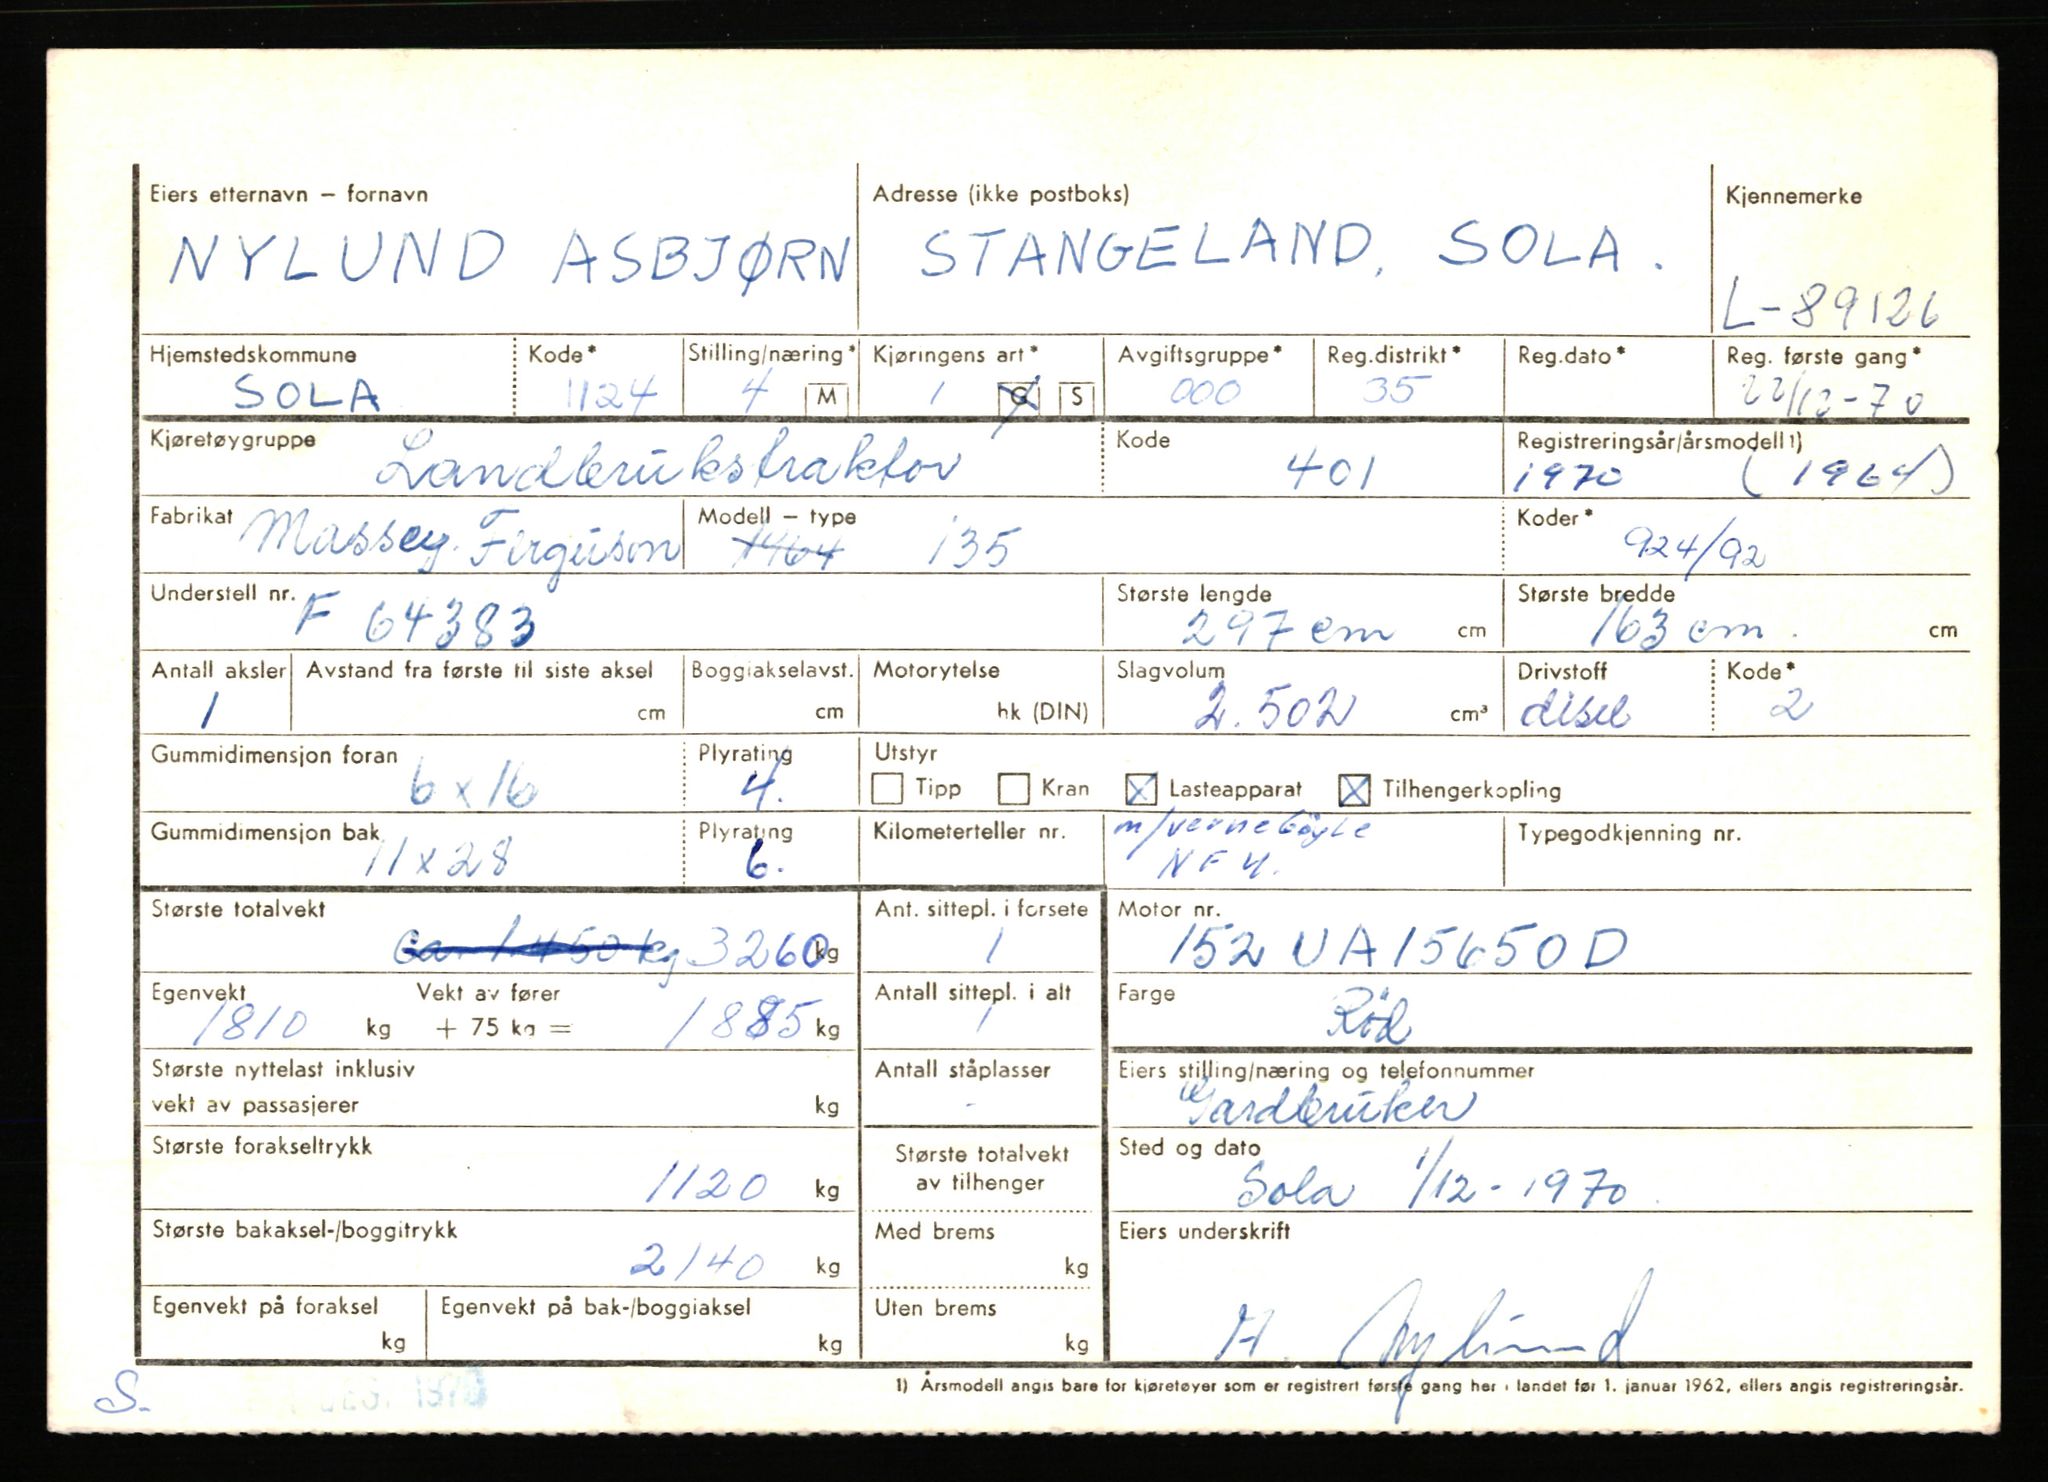 Eiers etternavn – fornavn Adresse (ikke postboks) Kjennemerke
NYLUND ASBJØRN STANGELAND, SOLA.
L-89126
Hjemstedskommune Kode* Stilling/næring* Kjøringens art* Avgiftsgruppe* Reg.distrikt* Reg.dato* Reg. første gang*
SOLA 1124 4 M 1 G S 000 35 22/12-70
Kjøretøygruppe Kode Registreringsår/årsmodell 1)
Landbrukstraktor 401 1970 (1964)
Fabrikat Modell – type Koder*
Massey Ferguson 1464 135 924/92
Understell nr. Største lengde Største bredde
F 64383 297 cm cm 163 cm. cm
Antall aksler Avstand fra første til siste aksel Boggiakselavst. Motorytelse Slagvolum Drivstoff Kode*
1 cm cm hk (DIN) 2.502 cm³ disel 2
Gummidimensjon foran Plyrating Utstyr
6 x 16 4. Tipp Kran Lasteapparat Tilhengerkopling
Gummidimensjon bak Plyrating Kilometerteller nr. m/vernebøyle Typegodkjenning nr.
11 x 28 6. NF4.
Største totalvekt Ant. sittepl. i forsete Motor nr.
Ca. 1.450 kg 3260 kg 1 152 UA15650D
Egenvekt Vekt av fører Antall sittepl. i alt Farge
1810 kg + 75 kg = 1885 kg 1 Rød
Største nyttelast inklusiv Antall ståplasser Eiers stilling/næring og telefonnummer
vekt av passasjerer kg - Gardbruker
Største forakseltrykk Største totalvekt Sted og dato
1120 kg av tilhenger Sola 1/12-1970
Største bakaksel-/boggitrykk Med brems Eiers underskrift
2140 kg kg
Egenvekt på foraksel Egenvekt på bak-/boggiaksel Uten brems
kg kg kg A. Nylund
1) Årsmodell angis bare for kjøretøyer som er registrert første gang her i landet før 1. januar 1962, ellers angis registreringsår.
S. DES. 1970